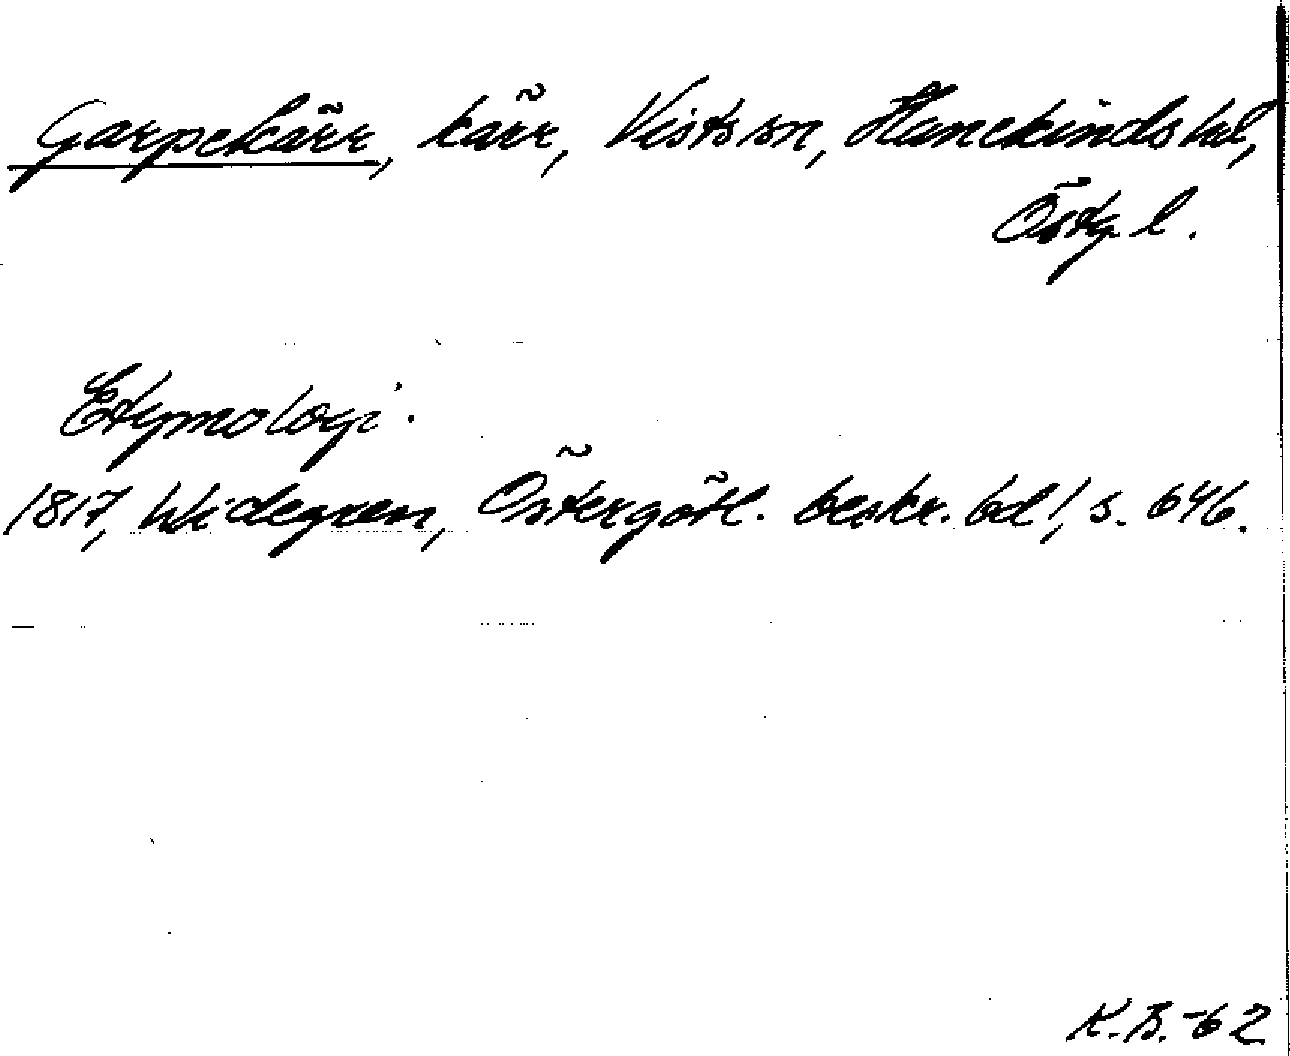 Garpekärr, kärr, Vists sn, Hanekinds hd,
Östg. l.
Etymologi.
1817, Widegren, Östergötl. beskr. bd 1, s. 646.
K.B.-62